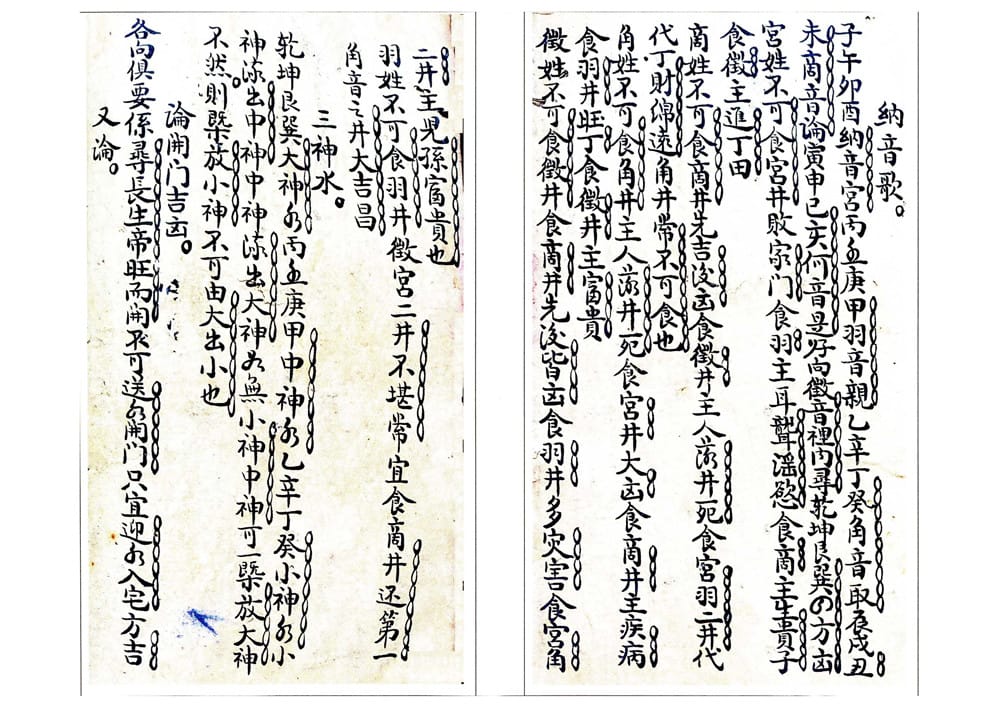 納音歌。
子午卯酉納音宮丙壬庚甲羽音親乙辛丁癸角音取辰戌丑
未商音論寅申巳亥何音是好向徵音裡內尋乾坤艮巽四方凶
宮姓不可食宮井敗家门食羽主耳聾滛慾食商主生貴子
食徵主進丁田
商姓不可食商井先吉後凶食徵井主人落井死食宮羽二井代
代丁財綿遠角井常不可食也
角姓不可食角井主人落井死食宮井大凶食商井主疾病
食羽井旺丁食徵井主富貴
徵姓不可食徵井食商井先後皆凶食羽井多灾害食宮角
二井主児孫富貴也
羽姓不可食羽井徵宮二井不堪常宜食商井还第一
角音之井大吉昌
三神水。
乾坤艮巽大神水丙壬庚甲中神水乙辛丁癸小神水小
神流出中神中神流出大神若無小神中神可一槩放大神
不然則槩放小神不可由大出小也
論開门吉凶。
各向俱要係尋長生帝旺而開不可送水開门只宜迎水入宅方吉
又論。